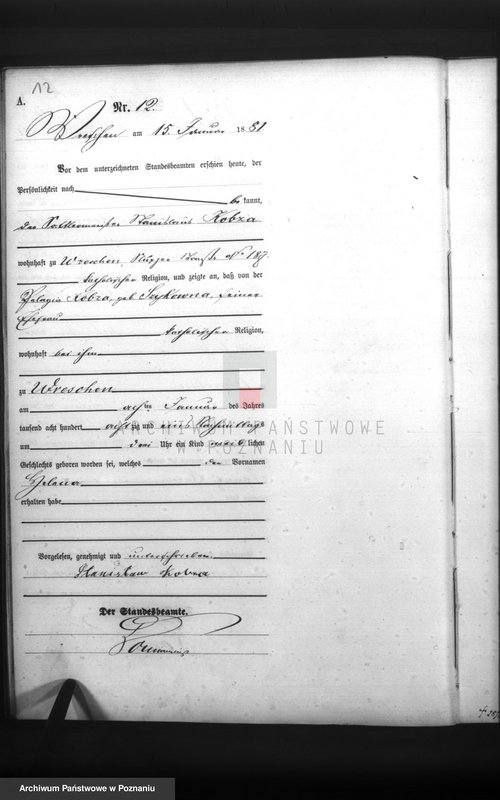 12
A.
Nr. 12.
Wreschen am 15. Januar 1881
Vor dem unterzeichneten Standesbeamten erschien heute, der
Persönlichkeit nach
bekannt,
der Sattlermeister Stanislaus Kobza
wohnhaft zu Wreschen No 187
katholischer Religion, und zeigte an, daß von der
Pelagia Kobza, geb. seiner
Ehefrau
katholischer Religion,
wohnhaft bei ihm
zu Wreschen
am achten Januar des Jahres
tausend acht hundert achtzig und eins Nachmittags
um drei Uhr ein Kind weiblichen
Geschlechts geboren worden sei, welches den Vornamen
Helena
erhalten habe
Vorgelesen, genehmigt und unterschrieben
Stanisław Kobza
Der Standesbeamte.
ARCHIWUM PAŃSTWOWE
W POZNANIU
Archiwum Państwowe w Poznaniu